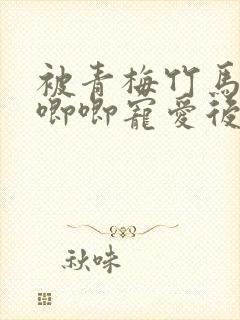 被青梅竹馬
唧唧寵愛後
秋味